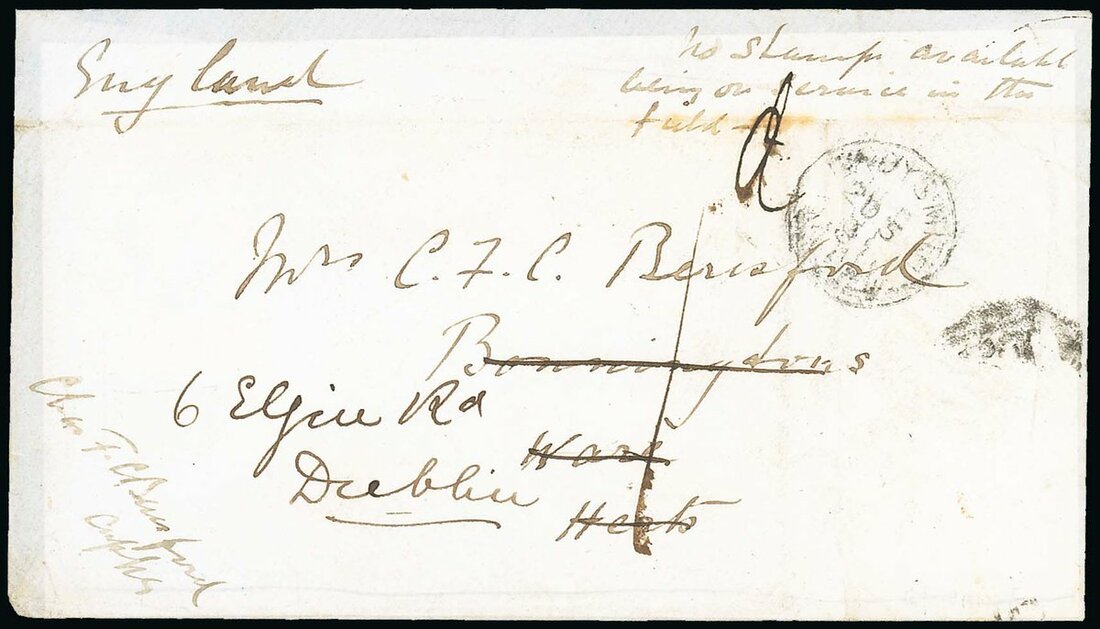 England
No stamps available
being on service in the
field
d
Mrs C. F. C. Beresford
Bonningtons
6 Elgin Rd
Ware
Dublin
Herts
1
Chas F C Beresford
Capt